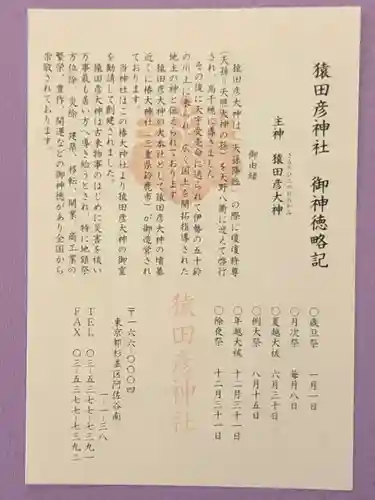 猿田彦神社 御神徳略記
さるたひこのおおかみ
主神 猿田彦大神
御由緒
猿田彦大神は、「天孫降臨」の際に瓊瓊杵尊
(天孫=天照大神の孫)を天野八衢に迎えて啓行
され、高千穂に導きました。
その後に天宇受売命に送られて伊勢の五十鈴
の川上に来られ、広く国土を開拓指導された
地主の神と伝えられております。
猿田彦大神の大本社として猿田彦大神の墳墓
近くに椿大神社(三重県鈴鹿市)が御造営され
ております。
当神社はこの椿大神社より猿田彦大神の御霊
を勧請して創建されました。
猿田彦大神は古来物事のはじめに災害を祓い
万事最も善い方へ導き給うとされ、特に地鎮祭
方位除、災除、建築、移転、開業、商工業の
繁栄、豊作、開運などの御神徳があり全国から
崇敬されております。
〇歳旦祭 一月一日
〇月次祭 毎月八日
〇夏越大祓 六月三十日
〇例大祭 八月十五日
〇年越大祓 十二月三十一日
〇除夜祭 十二月三十一日
猿田彦神社
〒一六六-〇〇〇四
東京都杉並区阿佐谷南
一-一-三八
TEL 〇三-五三七七-七三九一
FAX 〇三-五三七七-七三九二